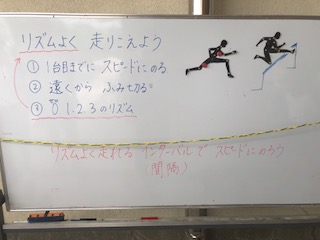 リズムよく 走りこえよう
① 1台目までに スピードにのる
② 遠くから ふみ切る
③ 1.2.3のリズム
リズムよく走れる インターバルで スピードにのろう
(間隔)